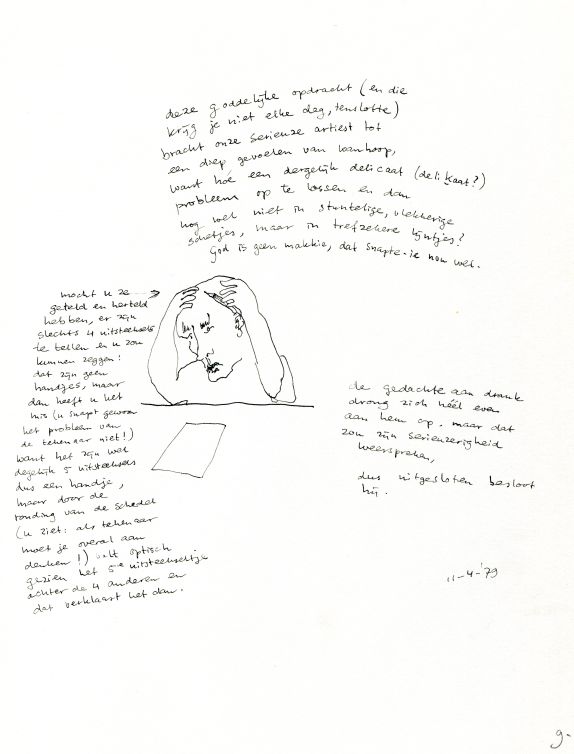 deze goddelijke opdracht (en die
krijg je niet elke dag, tenslotte)
bracht onze serieuze artiest tot
een diep gevoelen van wanhoop,
want hoé een dergelijk delicaat (delikaat?)
probleem op te lossen en dan
nog wel niet in stuntelige, vlekkerige
schetsjes, maar in trefzekere lijntjes?
God is geen makkie, dat snapte-ie nou wel.
mocht u ze
geteld en herteld
hebben, er zijn
slechts 4 uitsteeksels
te tellen en u zou
kunnen zeggen:
dat zijn geen
handjes, maar
dan heeft u het
mis (u snapt gewoon
het probleem van
de tekenaar niet!)
want het zijn wel
degelijk 5 uitsteeksels
dus een handje,
maar door de
ronding van de schedel
(u ziet: als tekenaar
moet je overal aan
denken!) valt optisch
gezien het 5e uitsteekseltje
achter de 4 anderen en
dat verklaart het dan.
de gedachte aan drank
drong zich héél even
aan hem op. maar dat
zou zijn serieuzerigheid
weerspreken,
dus uitgesloten besloot
hij.
11-4-'79
9-